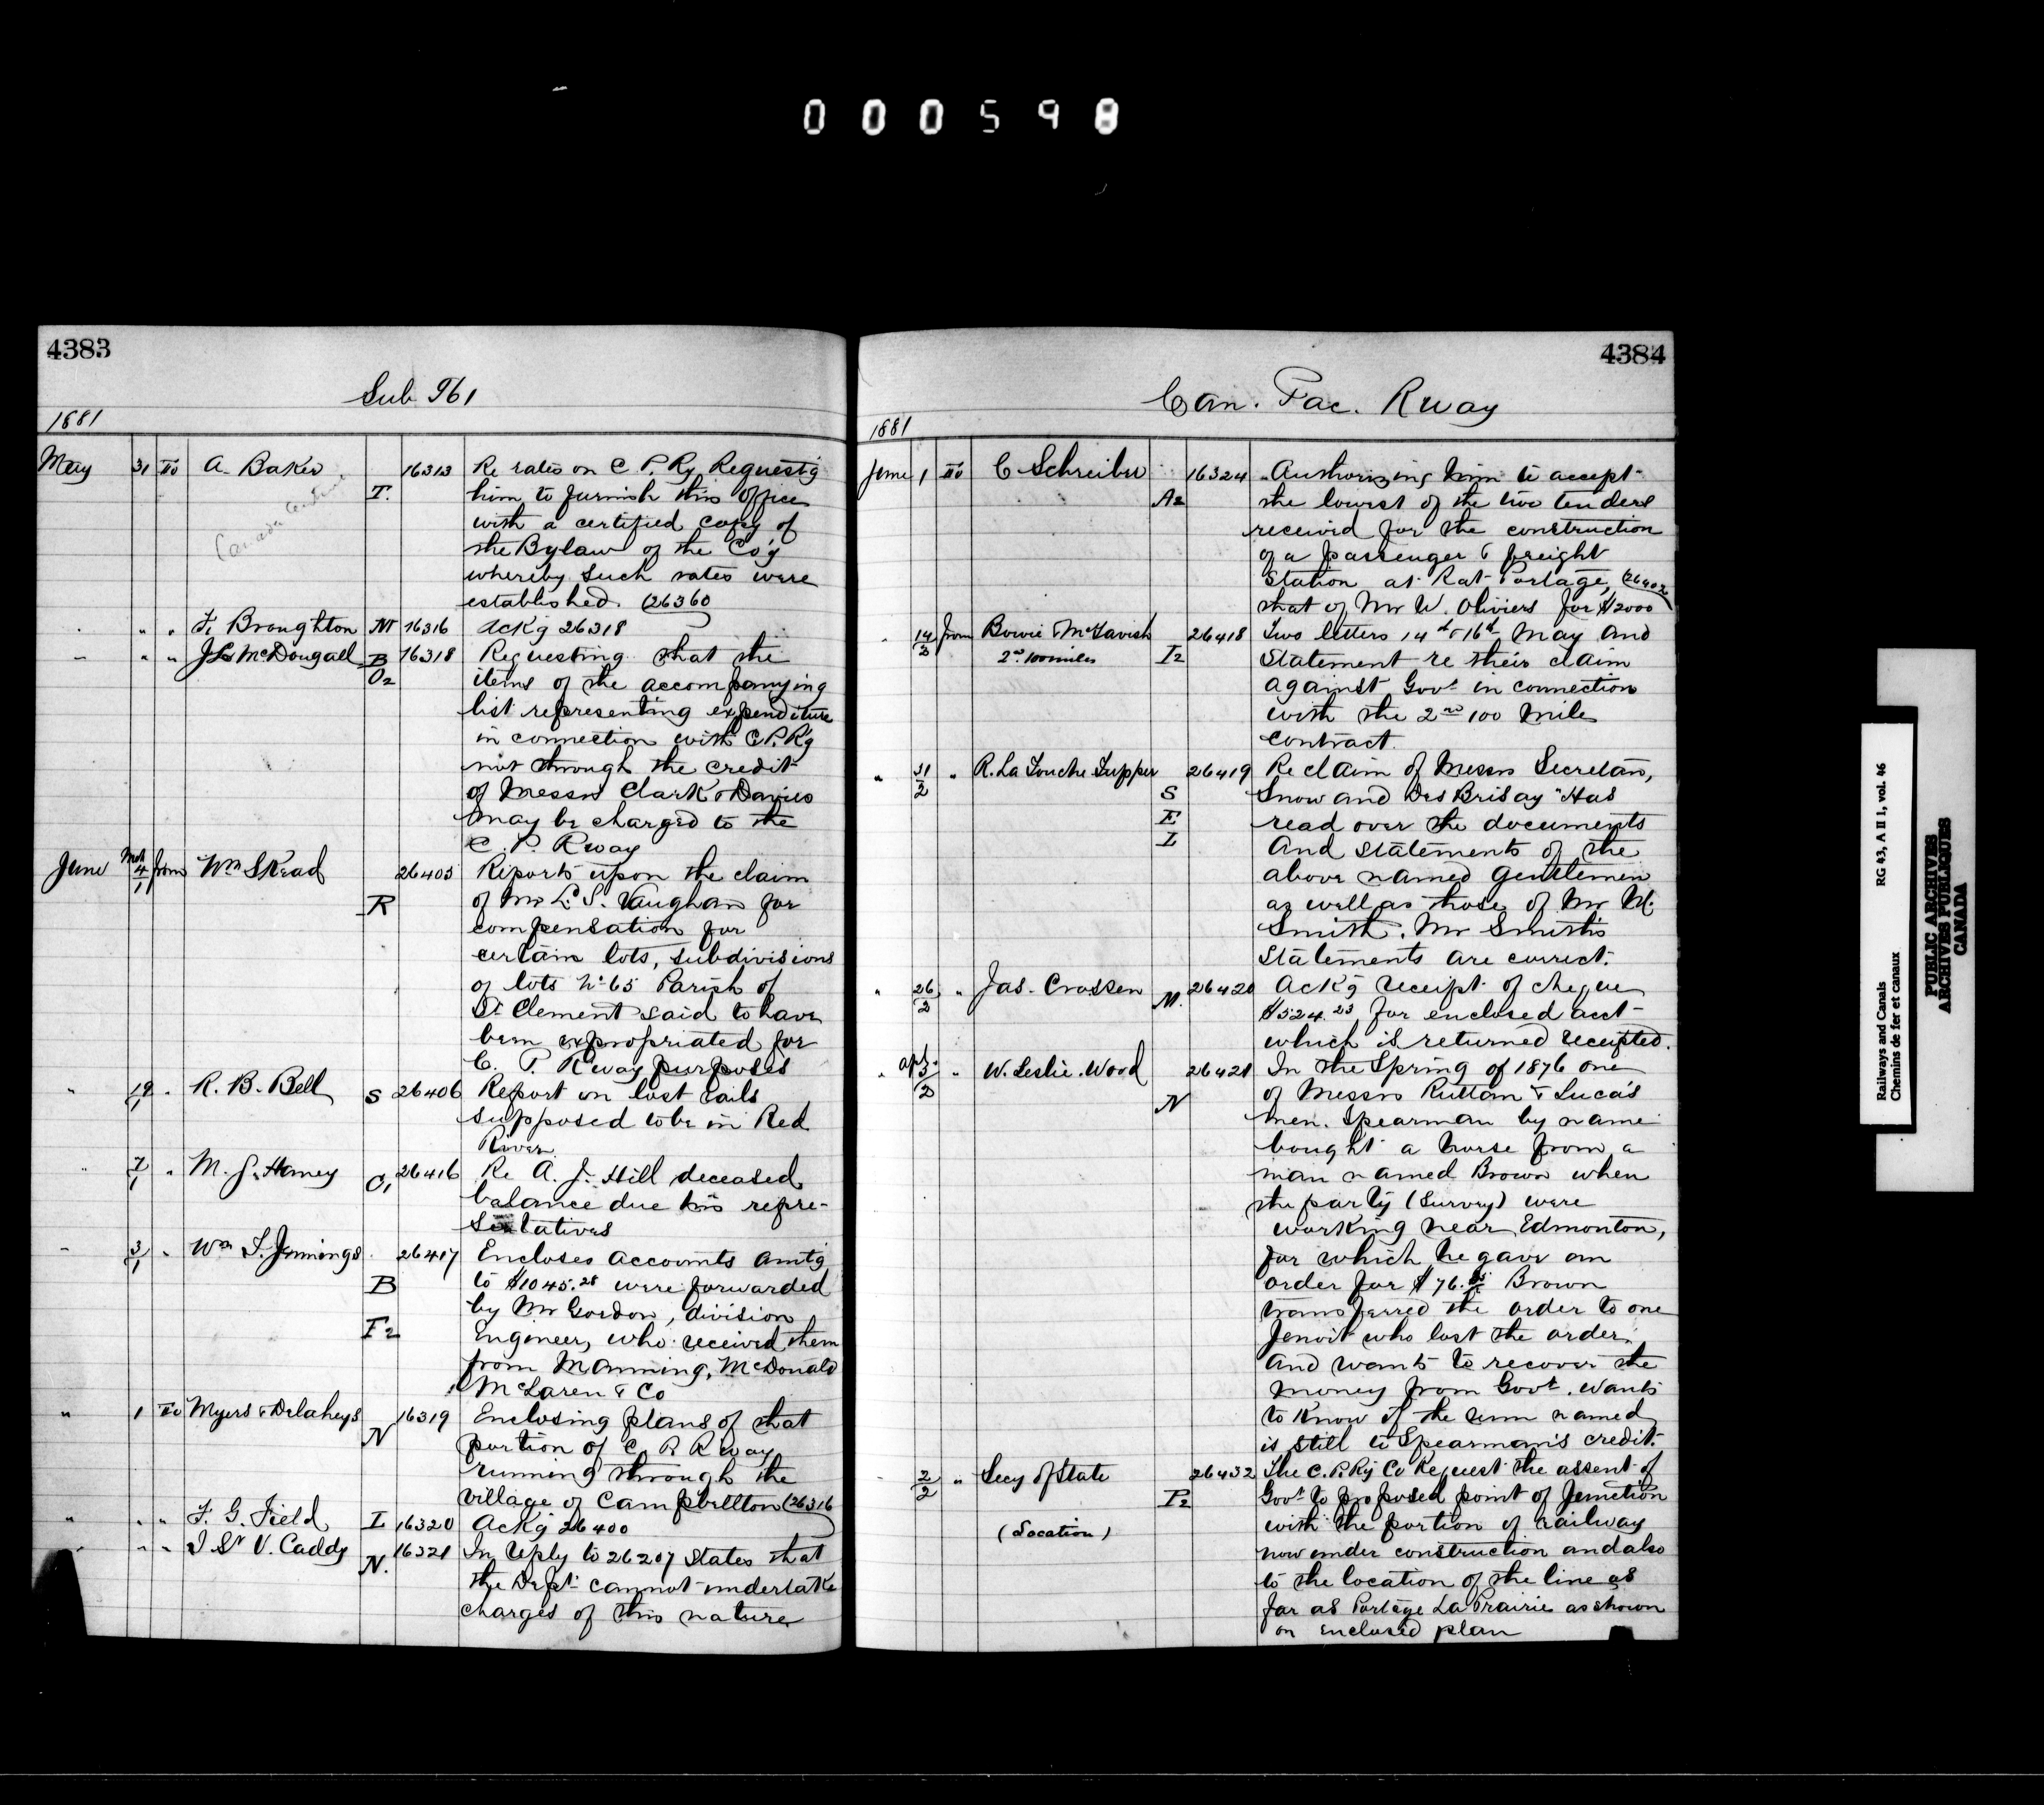 000598
4383
Sub 961
1881
May 31 To A. Baker T. 16313 Re rates on C. P. Ry Requestg
him to furnish this office
with a certified copy of
the Bylaw of the Co'y
whereby such rates were
established. (26360
Canada Central
" " F. Broughton M 16316 Ackg 26318
" " J L McDougall B O2 16318 Requesting that the
items of the accompanying
list representing expenditure
in connection with C.P.Ry
not through the credit
of Messrs Clark & Davies
may be charged to the
C. P. Rway
June Mch 4/1 from Wm Skead R 26405 Reports upon the claim
of Mr L. S. Vaughan for
compensation for
certain lots, subdivisions
of lots No 65 Parish of
St Clement said to have
been expropriated for
C. P. Rway purposes
" 19/1 " R. B. Bell S 26406 Report on lost rails
supposed to be in Red
River.
" 7/1 " M. J. Haney C1 26416 Re A. J. Hill deceased
balance due his repre-
sentatives
" 3/1 " Wm T. Jennings B F2 26417 Encloses accounts amtg
to $1045.28 were forwarded
by Mr Gordon, division
Engineer, who received them
from Manning, McDonald
McLaren & Co
" 1 To Myers & Delaheys N 16319 Enclosing plans of that
portion of C. P. Rway
running through the
village of Campbellton (26316
" " " F. G. Field I 16320 Ackg 26400
" " " J St V. Caddy N. 16321 In reply to 26207 States that
the Dept cannot undertake
charges of this nature
4384
Can. Pac. Rway
1881
June 1 To C Schreiber A2 16324 Authorizing him to accept
the lowest of the two tenders
received for the construction
of a passenger & freight
Station at Rat Portage, (26402
that of Mr W. Oliviers for $2000
" 14/2 from Bowie & McTavish I2 26418 Two letters 14th & 16th May and
2nd 100 miles
Statement re their claim
against Govt in connection
with the 2nd 100 Mile
Contract.
" 31/2 " R. La Touche Tupper S E I 26419 Re claim of Messrs Secretan,
Snow and Des Brisay "Has
read over the documents
And Statements of the
above named gentlemen
as well as those of Mr M.
Smith. Mr Smith's
Statements are correct.
" 26/2 " Jas. Crossen M. 26420 Ackg receipt of cheque
$524.23 for enclosed acct
which is returned receipted.
" apl 3/2 " W. Leslie Wood N 26421 In the Spring of 1876 one
of Messrs Ruttan & Lucas
men. Spearman by name
bought a horse from a
man named Brown when
the party (Survey) were
working near Edmonton,
for which he gave an
order for $76. Brown
transferred the order to one
Jenoit who lost the order
and wants to recover the
money from Govt. Wants
to know if the sum named
is still to Spearman's credit.
" 2/2 " Secy of State P2 26432 The C. P. Ry Co Request the assent of
Govt to proposed point of Junction
(Location)
with the portion of railway
now under construction and also
to the location of the line as
far as Portage La Prairie as shown
on enclosed plan
Railways and Canals RG 43, A II 1, vol. 46
Chemins de fer et canaux
PUBLIC ARCHIVES
ARCHIVES PUBLIQUES
CANADA